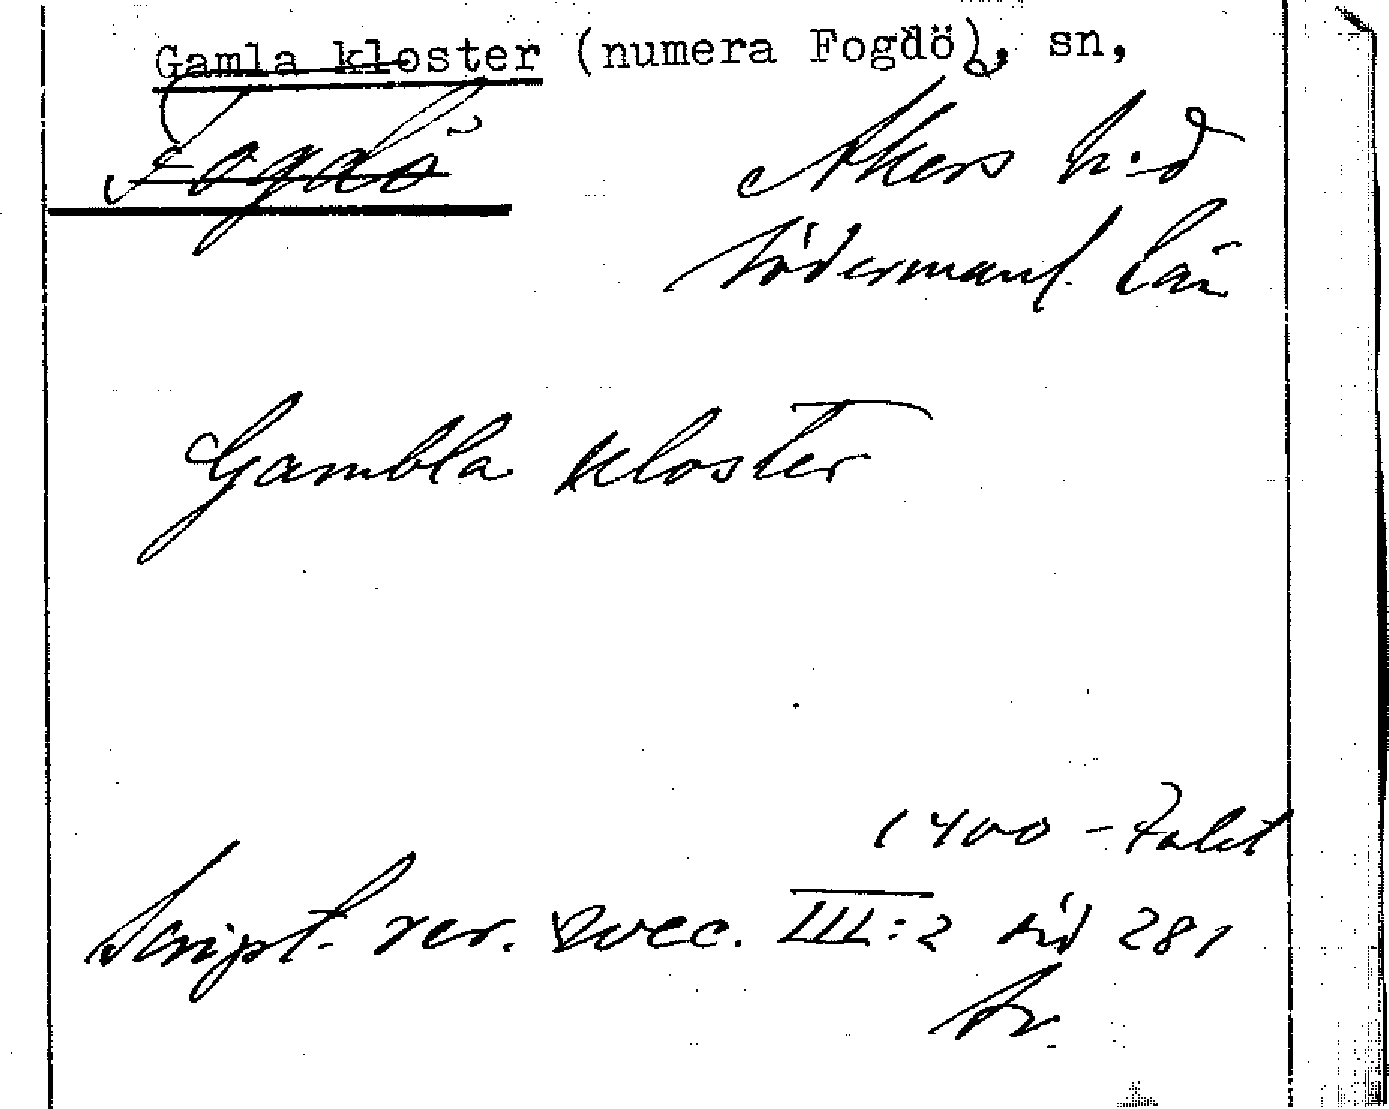 Gamla kloster (numera Fogdö), sn,
Fogdö
Åkers h:d
Södermanl. län
Gambla kloster
1400-talet
Script. rer. svec. III:2 sid 281
tr.